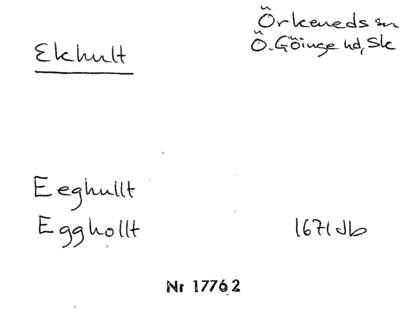 Örkeneds sn
Ekhult
Ö. Göinge hd, Sk
Eeghullt
Egghollt 1671 Jb
Nr 17762